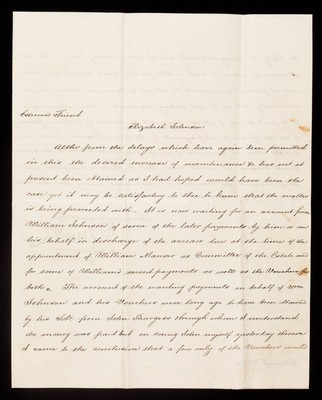 Esteemed Friend
Elizabeth Johnson
Altho' from the delays which have again been permitted
in this the desired increase of maintenance &c has not at
present been obtained as I had hoped would have been the
case yet it may be satisfactory to thee to know that the matter
is being proceeded with. It is now waiting for an account from
William Johnson of some of the later payments by him or on
his behalf in discharge of the arrears due at the time of the
appointment of William Manser as Committee of the Estate and
for some of William's recent payments as well as the Vouchers for
both. The account of the wanting payments on behalf of Wm
Johnson and his Vouchers were long ago to have been obtained
by his Solr. from John Sturges through whom I understand
the money was paid but on seeing John myself yesterday thereon
I came to the conclusion that a few only of the Vouchers would